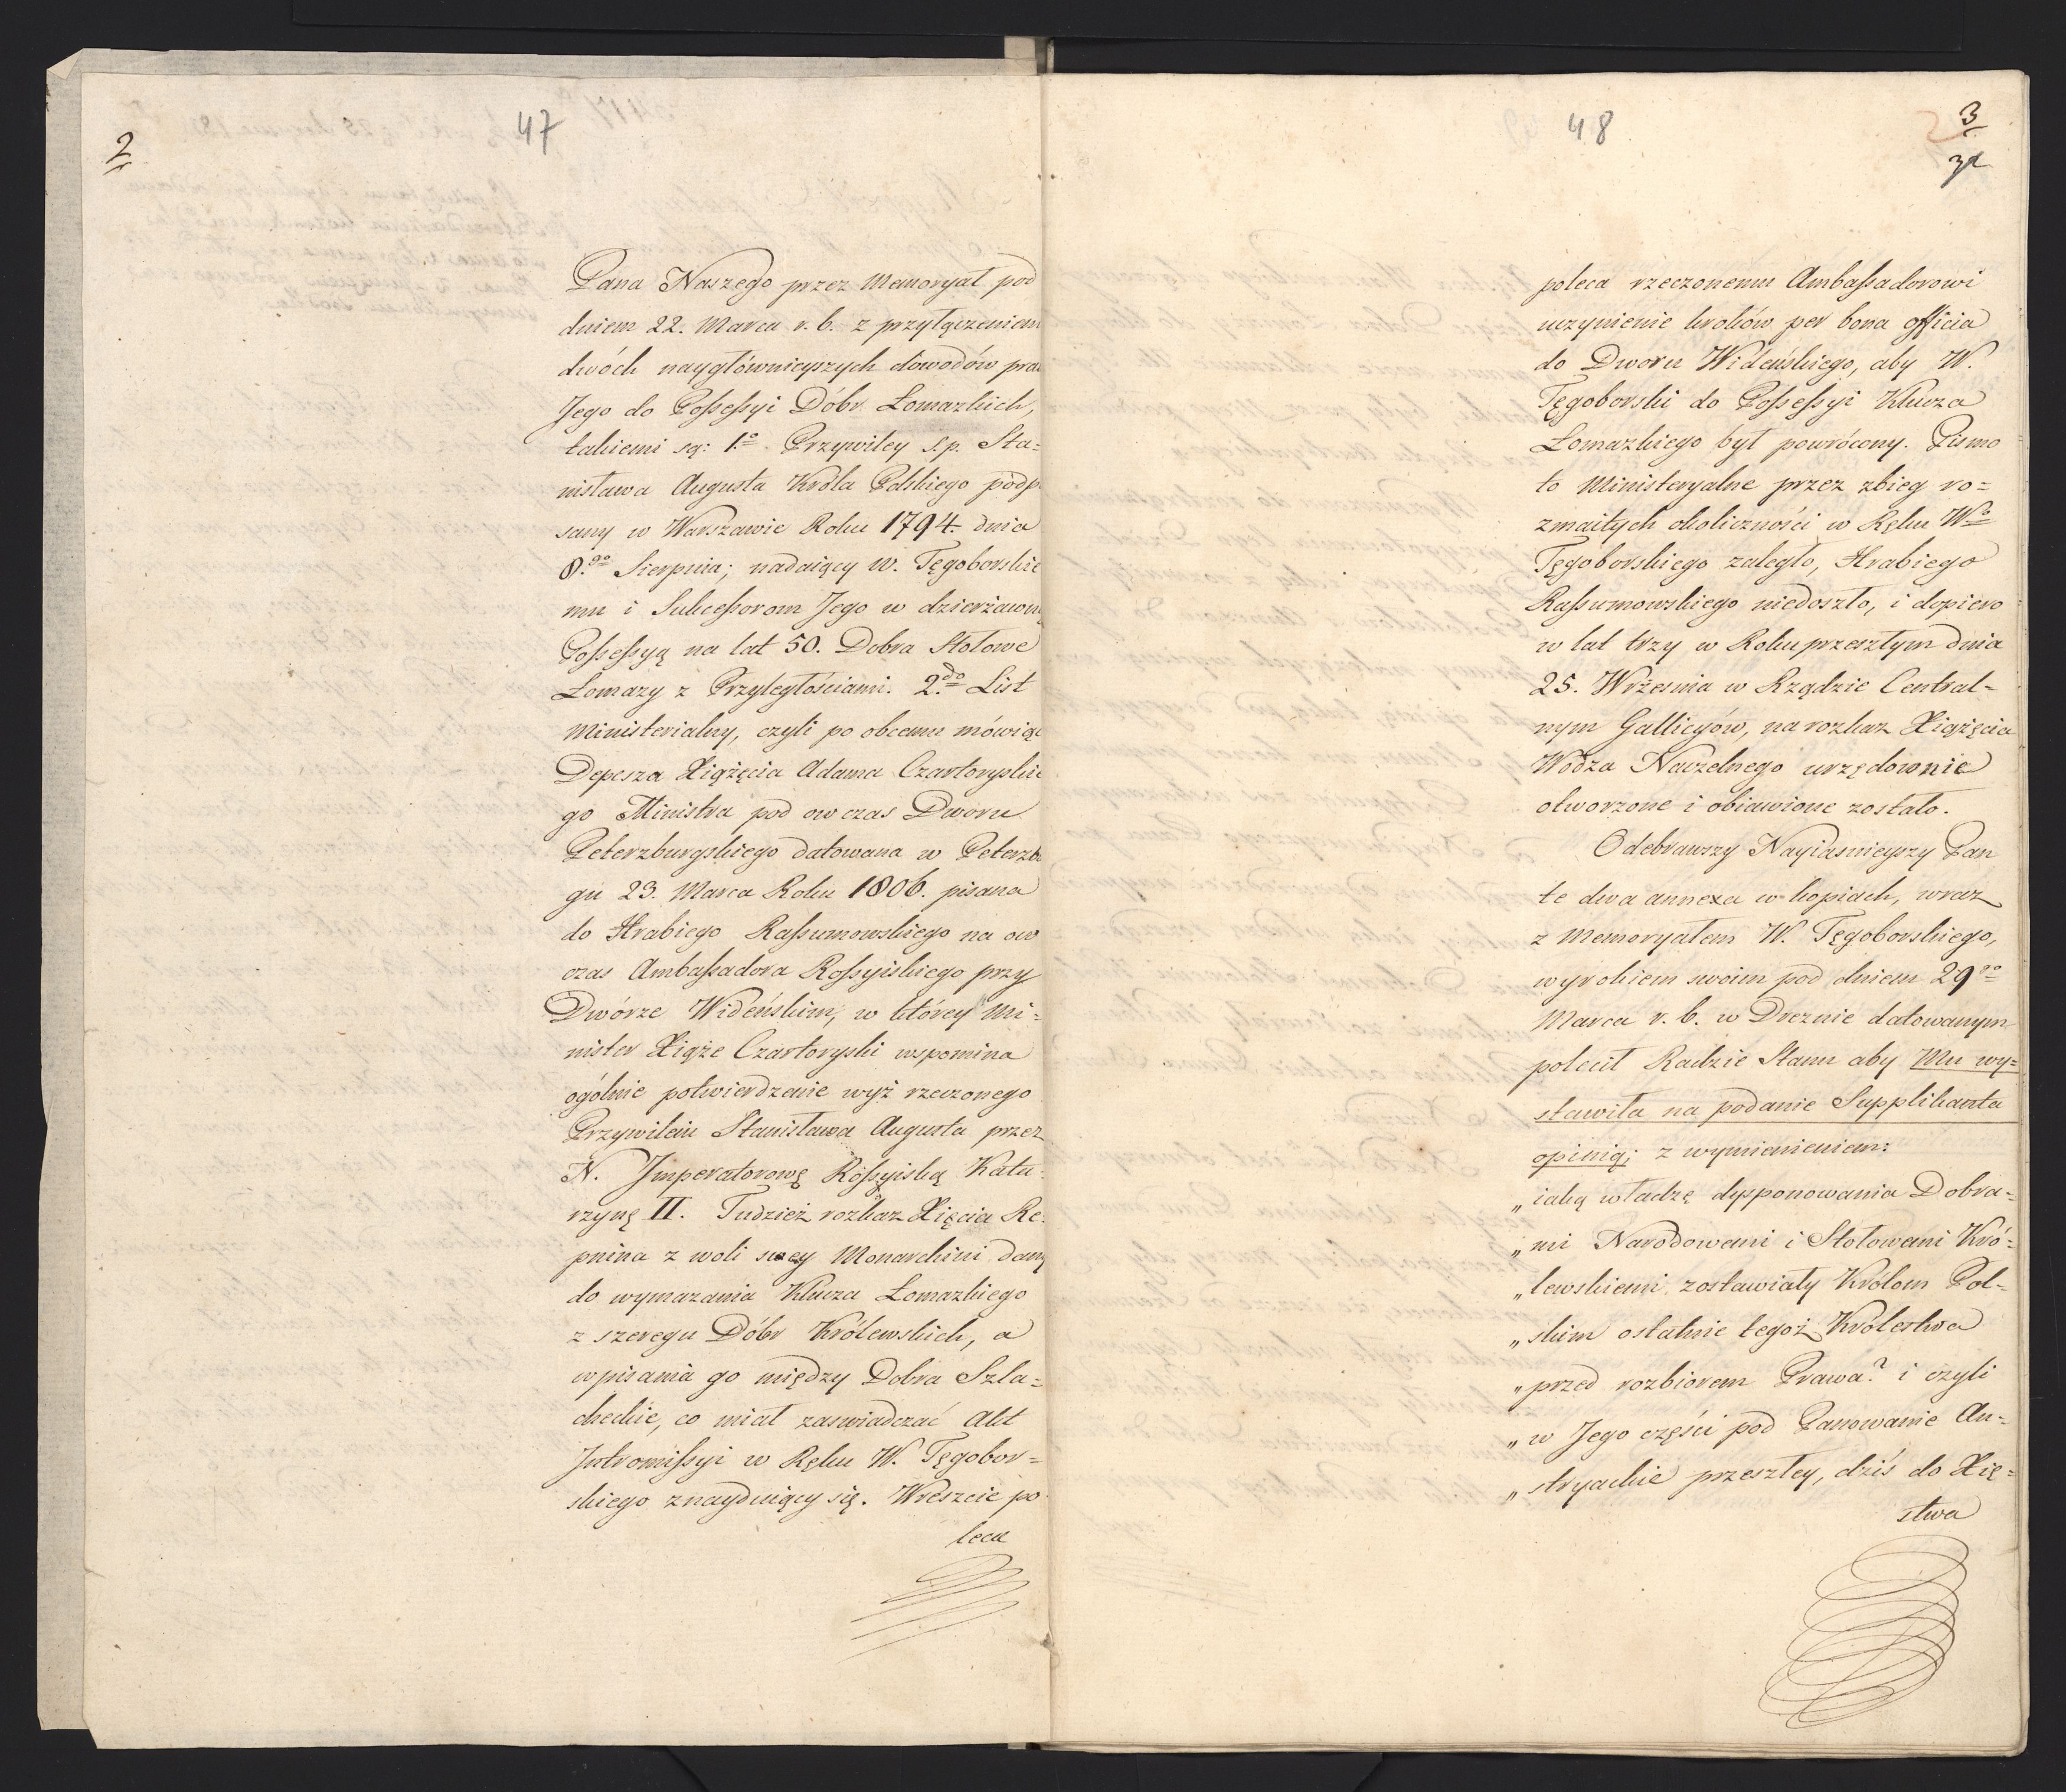 2
47
Pana Naszego przez Memoryał pod
dniem 22. Marca r. b. z przyłączeniem
dwóch naygłównieyszych dowodów pra
Jego do Possessyi Dóbr Łomazkich,
takiemi są: 1.o Przywiley ś.p. Sta=
nisława Augusta Króla Polskiego podp
sany w Warszawie Roku 1794. dnia
8.go Sierpnia; nadaiący W. Tęgoborskie
mu i Sukcessorom Jego w dzierżawn
Possessyą na lat 50. Dobra Stołowe
Łomazy z Przyległościami. 2.do List
Ministerialny, czyli po obcemu mówiąc
Depesza Xiążęcia Adama Czartoryskie
go Ministra pod ow czas Dworu
Peterzburgskiego datowana w Peterzb
gu 23. Marca Roku 1806. pisana
do Hrabiego Rassumowskiego na ow
czas Ambassadora Rossyiskiego przy
Dwórze Wideńskim, w którey Mi=
nister Xiąże Czartoryski wspomina
ogólnie potwierdzenie wyż rzeczonego
Przywileiu Stanisława Augusta przez
N. Imperatorowę Rossyiską Kata=
rzynę II. Tudzież rozkaz Xięcia Re=
pnina z woli swey Monarchini dany
do wymazania Klucza Łomazkiego
z szeregu Dóbr Królewskich, a
wpisania go między Dobra Szla=
checkie, co miał zaswiadczać Akt
Intromissyi w Ręku W. Tęgobor=
skiego znayduiący się. Wreszcie po
leca
48
3
poleca rzeczonemu Ambassadorowi
uczynienie kroków per bona officia
do Dworu Wideńskiego, aby W.
Tęgoborski do Possessyi Klucza
Łomazkiego był powrócony. Pismo
to Ministeryalne przez zbieg ro=
zmaitych okoliczności w Ręku Wo
Tęgoborskiego zaległo, Hrabiego
Rassumowskiego niedoszło, i dopiero
w lat trzy w Roku przeszłym dnia
25. Września w Rządzie Central=
nym Gallicyów, na rozkaz Xiążęcia
Wodza Naczelnego urzędownie
otworzone i obiawione zostało.
Odebrawszy Nayiasnieyszy Pan
te dwa annexa w kopiach, wraz
z Memoryałem W. Tęgoborskiego,
wyrokiem swoim pod dniem 29go
Marca r. b. w Dreznie datowanym
polecił Radzie Stanu aby Mu wy=
stawiła na podanie Supplikanta
opinią; z wymienieniem:
„iaką władzę dysponowania Dobra=
„mi Narodowemi i Stołowemi Kró=
„lewskiemi zostawiały Królom Pol=
„skim ostatnie tegoż Królestwa
„przed rozbiorem Prawa? i czyli
„w Jego części pod Panowanie Au=
„stryackie przeszłey, dziś do Xię=
stwa